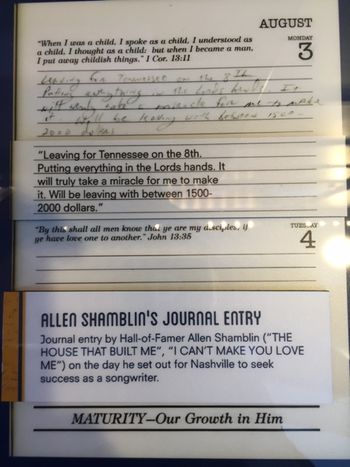 AUGUST
MONDAY
3
"When I was a child, I spoke as a child, I understood as
a child, I thought as a child: but when I became a man,
I put away childish things." 1 Cor. 13:11
Leaving for Tennessee on the 8th.
Putting everything in the Lords hands. It
will truly take a miracle for me to make
it. Will be leaving with between 1500-
2000 dollars
"Leaving for Tennessee on the 8th.
Putting everything in the Lords hands. It
will truly take a miracle for me to make
it. Will be leaving with between 1500-
2000 dollars."
TUESDAY
4
"By this shall all men know that ye are my disciples, if
ye have love one to another." John 13:35
ALLEN SHAMBLIN'S JOURNAL ENTRY
Journal entry by Hall-of-Famer Allen Shamblin ("THE
HOUSE THAT BUILT ME", "I CAN'T MAKE YOU LOVE
ME") on the day he set out for Nashville to seek
success as a songwriter.
MATURITY—Our Growth in Him